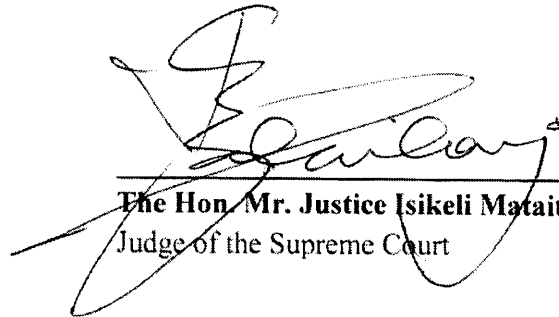 The Hon. Mr. Justice Isikeli Matait
Judge of the Supreme Court